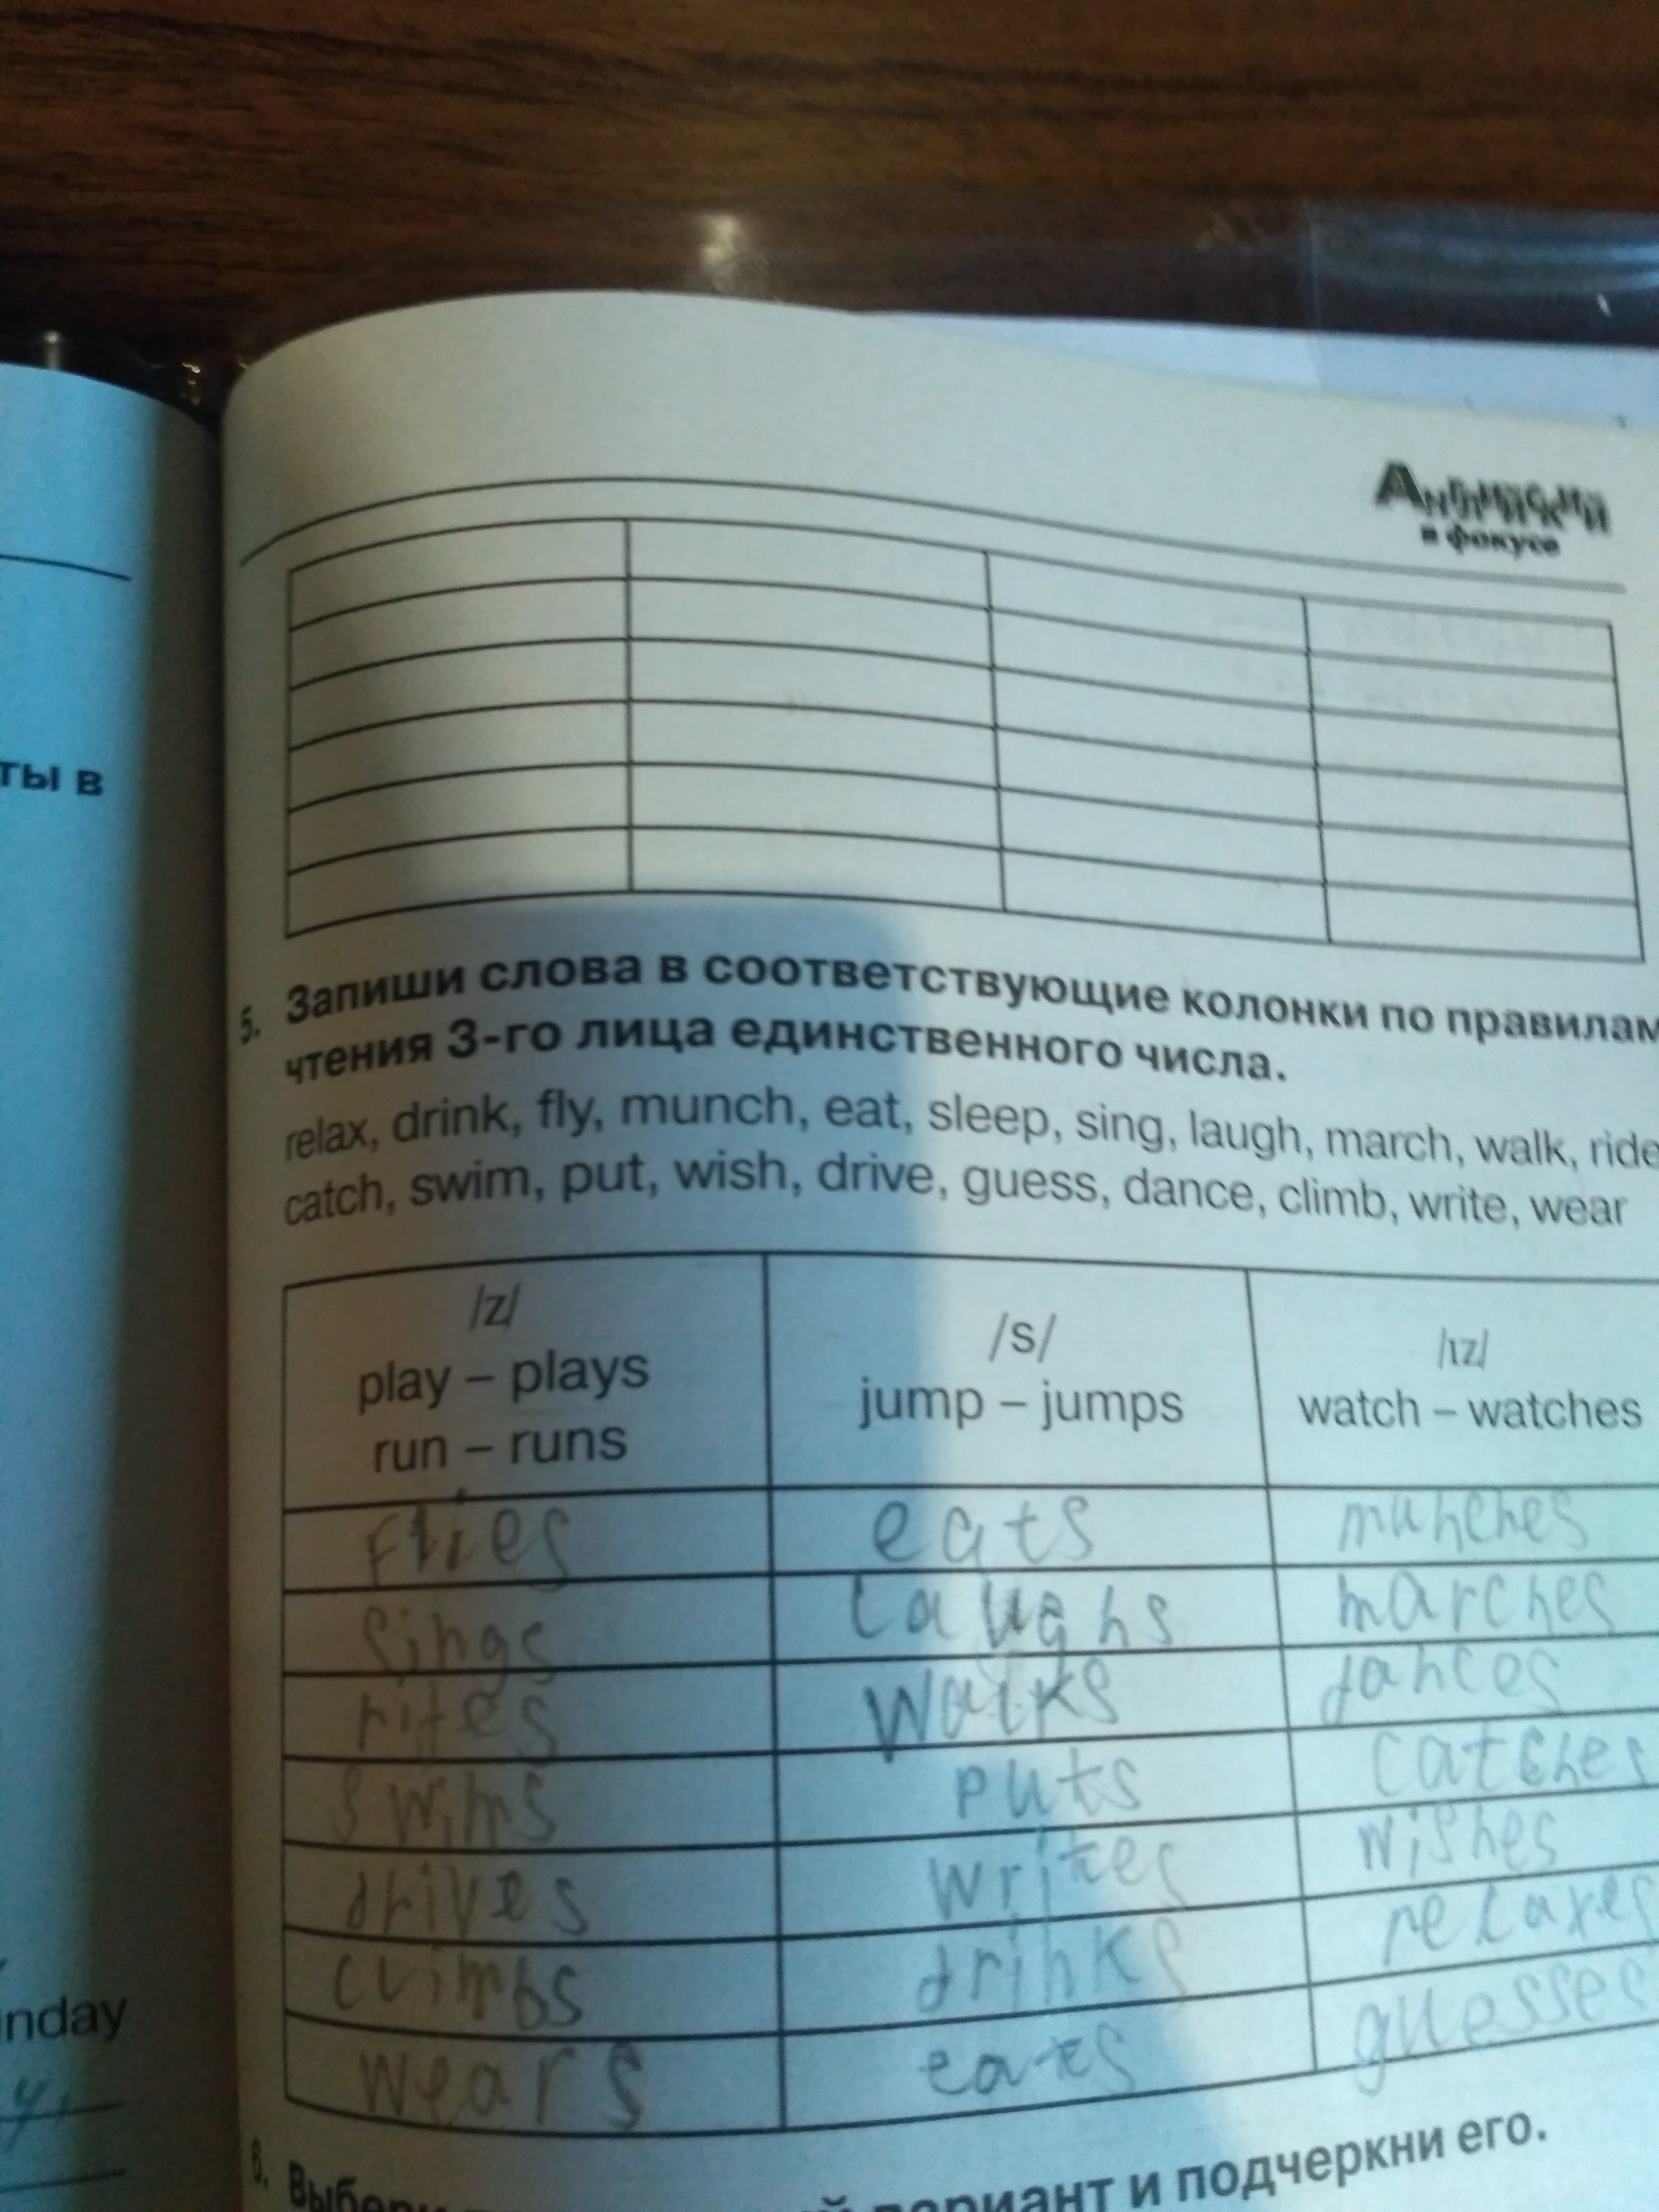 Английский
в фокусе
ты в
5. Запиши слова в соответствующие колонки по правилам
чтения 3-го лица единственного числа.
relax, drink, fly, munch, eat, sleep, sing, laugh, march, walk, ride
catch, swim, put, wish, drive, guess, dance, climb, write, wear
/z/
play – plays
run – runs
/s/
jump – jumps
/ɪz/
watch – watches
flies eats munches
sings laughs marches
rides walks dances
swims puts catches
drives writes wishes
climbs drinks relaxes
wears eats guesses
nday
y,
6. вариант и подчеркни его.